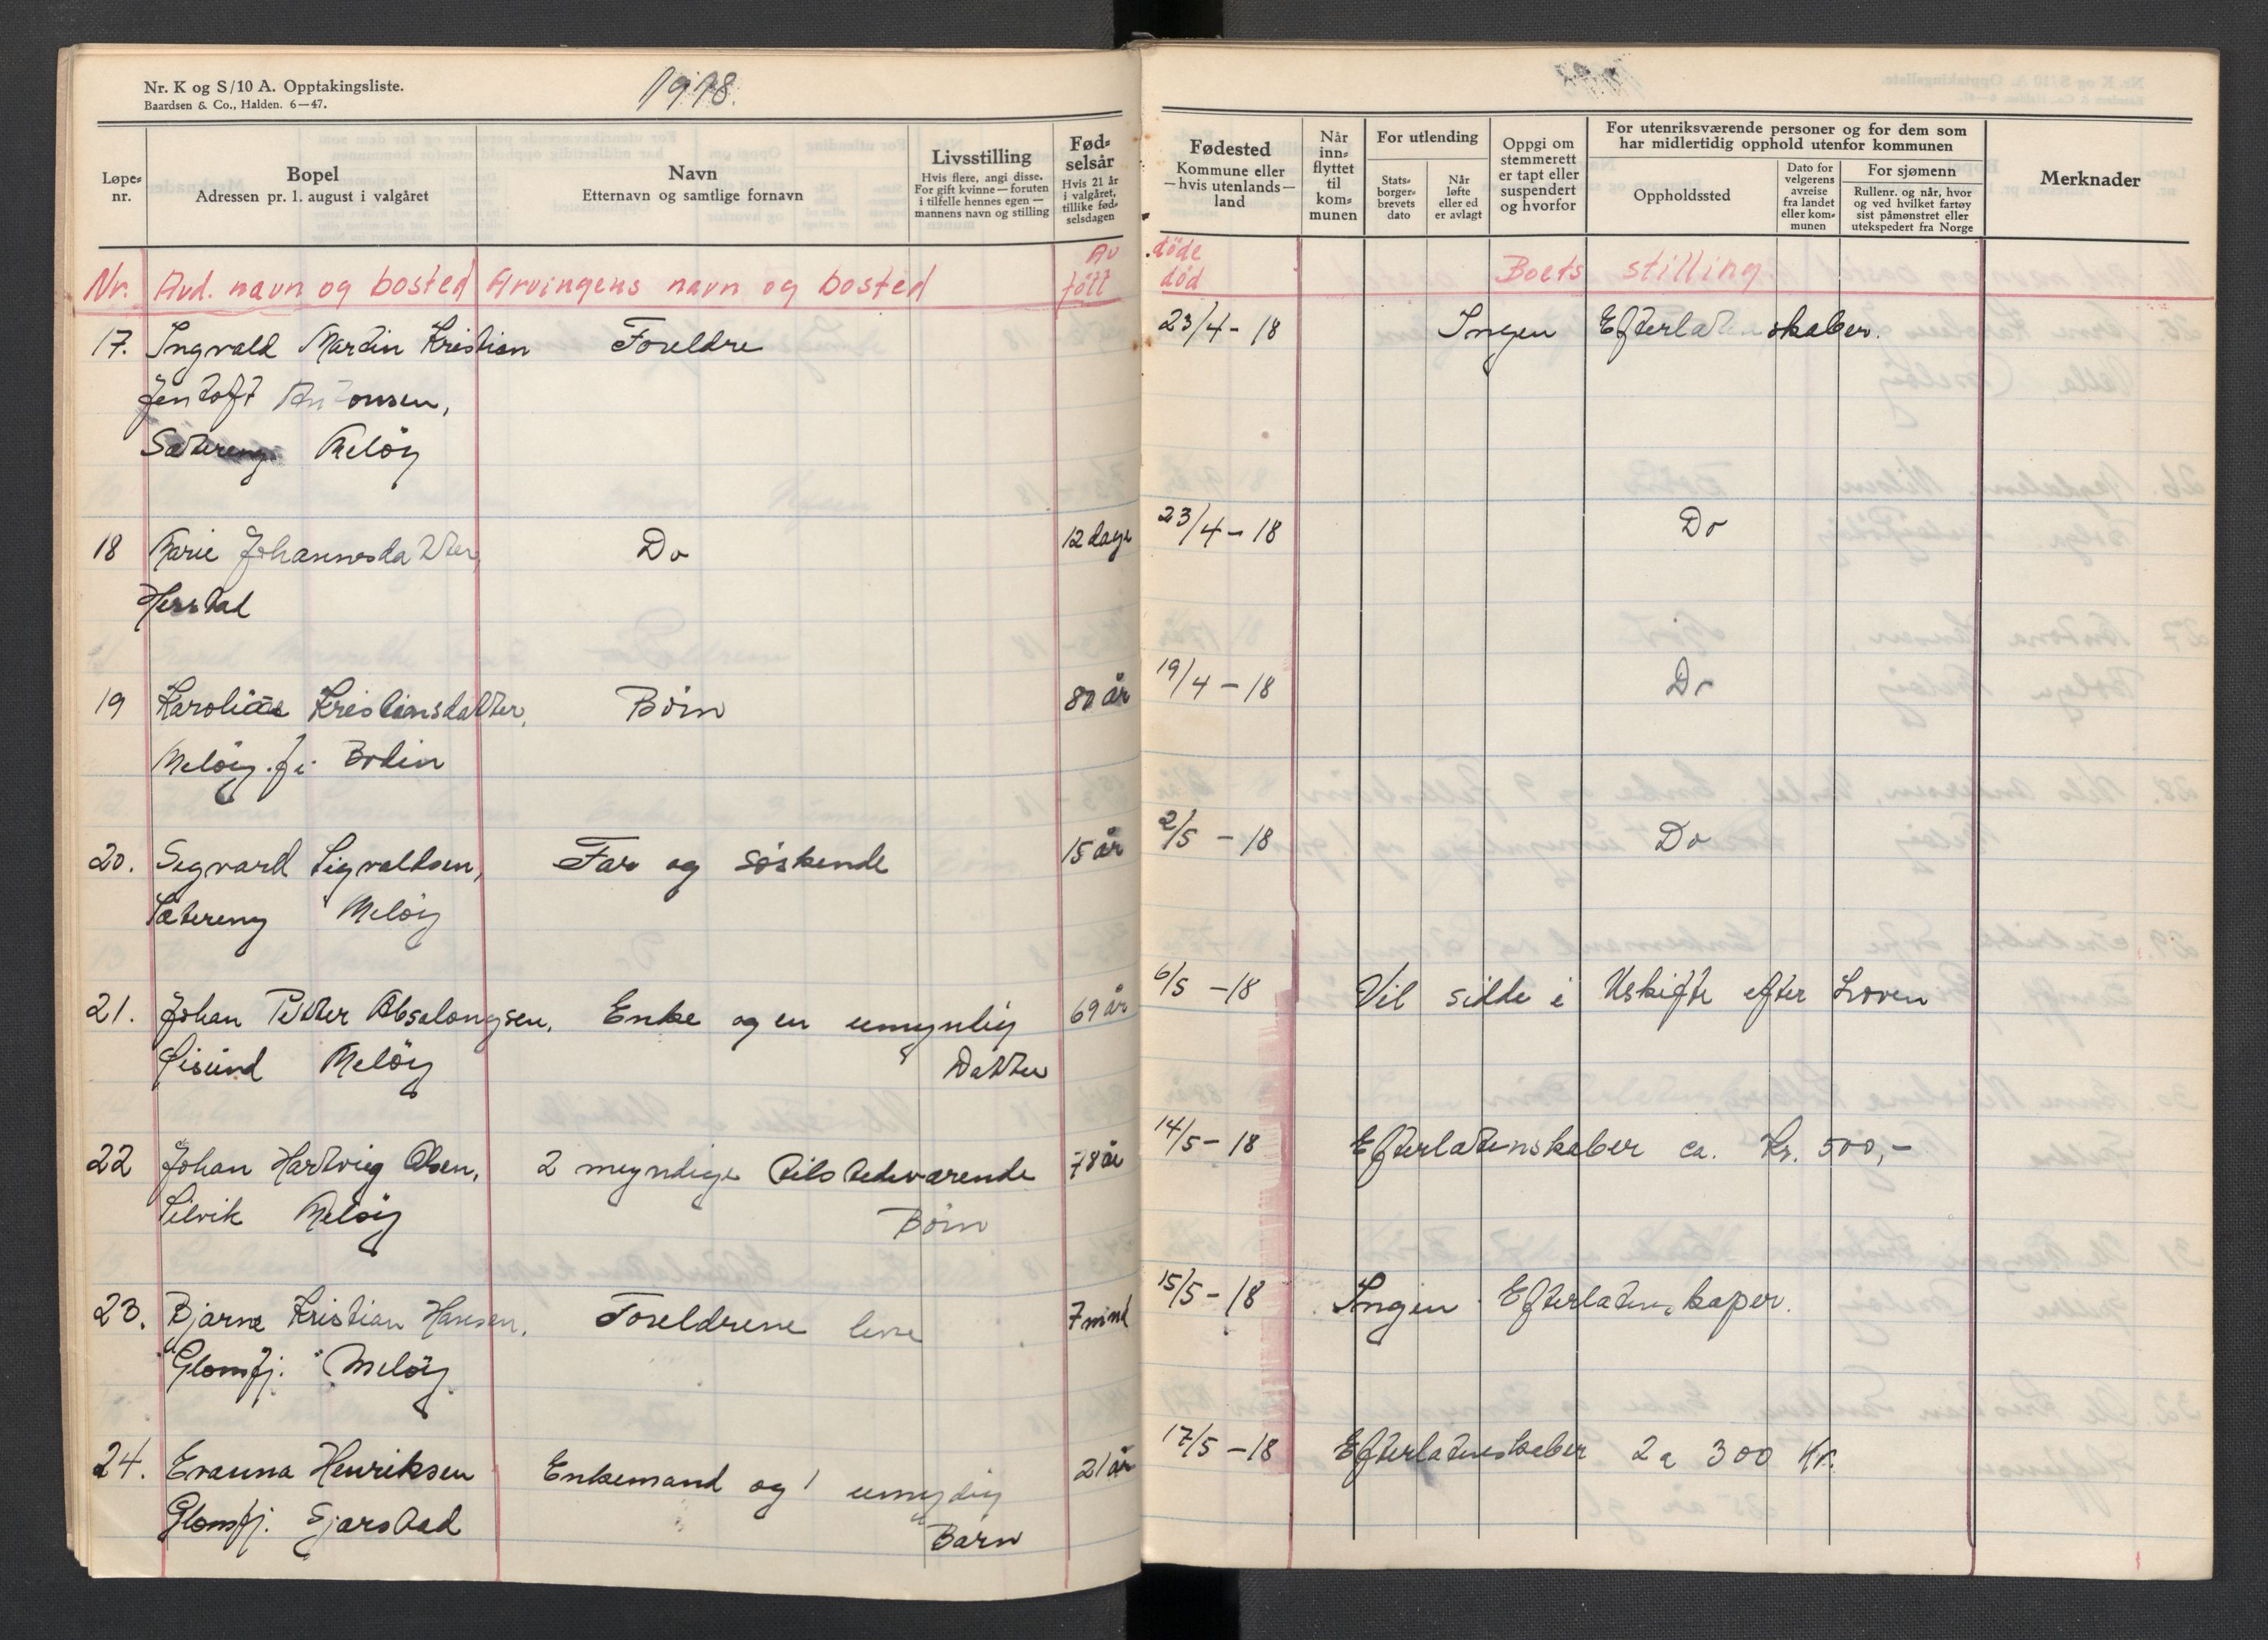 Nr. K og S/10 A. Opptakingsliste.
Baardsen & Co., Halden. 6—47.
1918.
Løpe-
nr.
Bopel
Adressen pr. 1. august i valgåret
Navn
Etternavn og samtlige fornavn
Livsstilling
Hvis flere, angi disse.
For gift kvinne — foruten
i tilfelle hennes egen —
mannens navn og stilling
Fød-
selsår
Hvis 21 år
i valgåret,
tillike fød-
selsdagen
Fødested
Kommune eller
—hvis utenlands—
land
Når
inn-
flyttet
til
kom-
munen
For utlending
Stats-
borger-
brevets
dato
Når
løfte
eller ed
er avlagt
Oppgi om
stemmerett
er tapt eller
suspendert
og hvorfor
For utenriksværende personer og for dem som
har midlertidig opphold utenfor kommunen
Oppholdssted
Dato for
velgerens
avreise
fra landet
eller kom-
munen
For sjømenn
Rullenr. og når, hvor
og ved hvilket fartøy
sist påmønstret eller
utekspedert fra Norge
Merknader
Av døde
Nr. Avd. navn og bosted Arvingens navn og bosted født død Boets stilling
17. Ingvald Martin Kristian Foreldre 23/4 - 18 Ingen Efterladenskaber.
Jentoft Antonsen,
Sætereng Meløy
18 Marie Johannesdatter, Do 12 dage 23/4 - 18 Do
Herstad
19 Karoline Kristiansdatter, Börn 80 år 19/4 - 18 Do
Melöy. f i Bodin
20. Sigvard Sigvaldsen, Far og søskende 15 år 2/5 - 18 Do
Sætereng Melöy
21. Johan Petter Absalongsen, Enke og en umyndig 69 år 6/5 - 18 Vil sidde i Uskifte efter Loven
Øisund Melöy Datter
22 Johan Hartvig Olsen, 2 myndige tilstedeværende 78 år 14/5 - 18 Efterladenskaber ca. Kr. 500,-
Selvik Melöy Börn
23. Bjarne Kristian Hansen, Foreldrene leve 7 mnd 15/5 - 18 Ingen Efterladenskaper.
Glomfj. Melöy
24. Evanna Henriksen Enkemand og 1 umydig 21 år 17/5 - 18 Efterladenskaber 2 a 300 Kr.
Glomfj. Sjarstad Barn